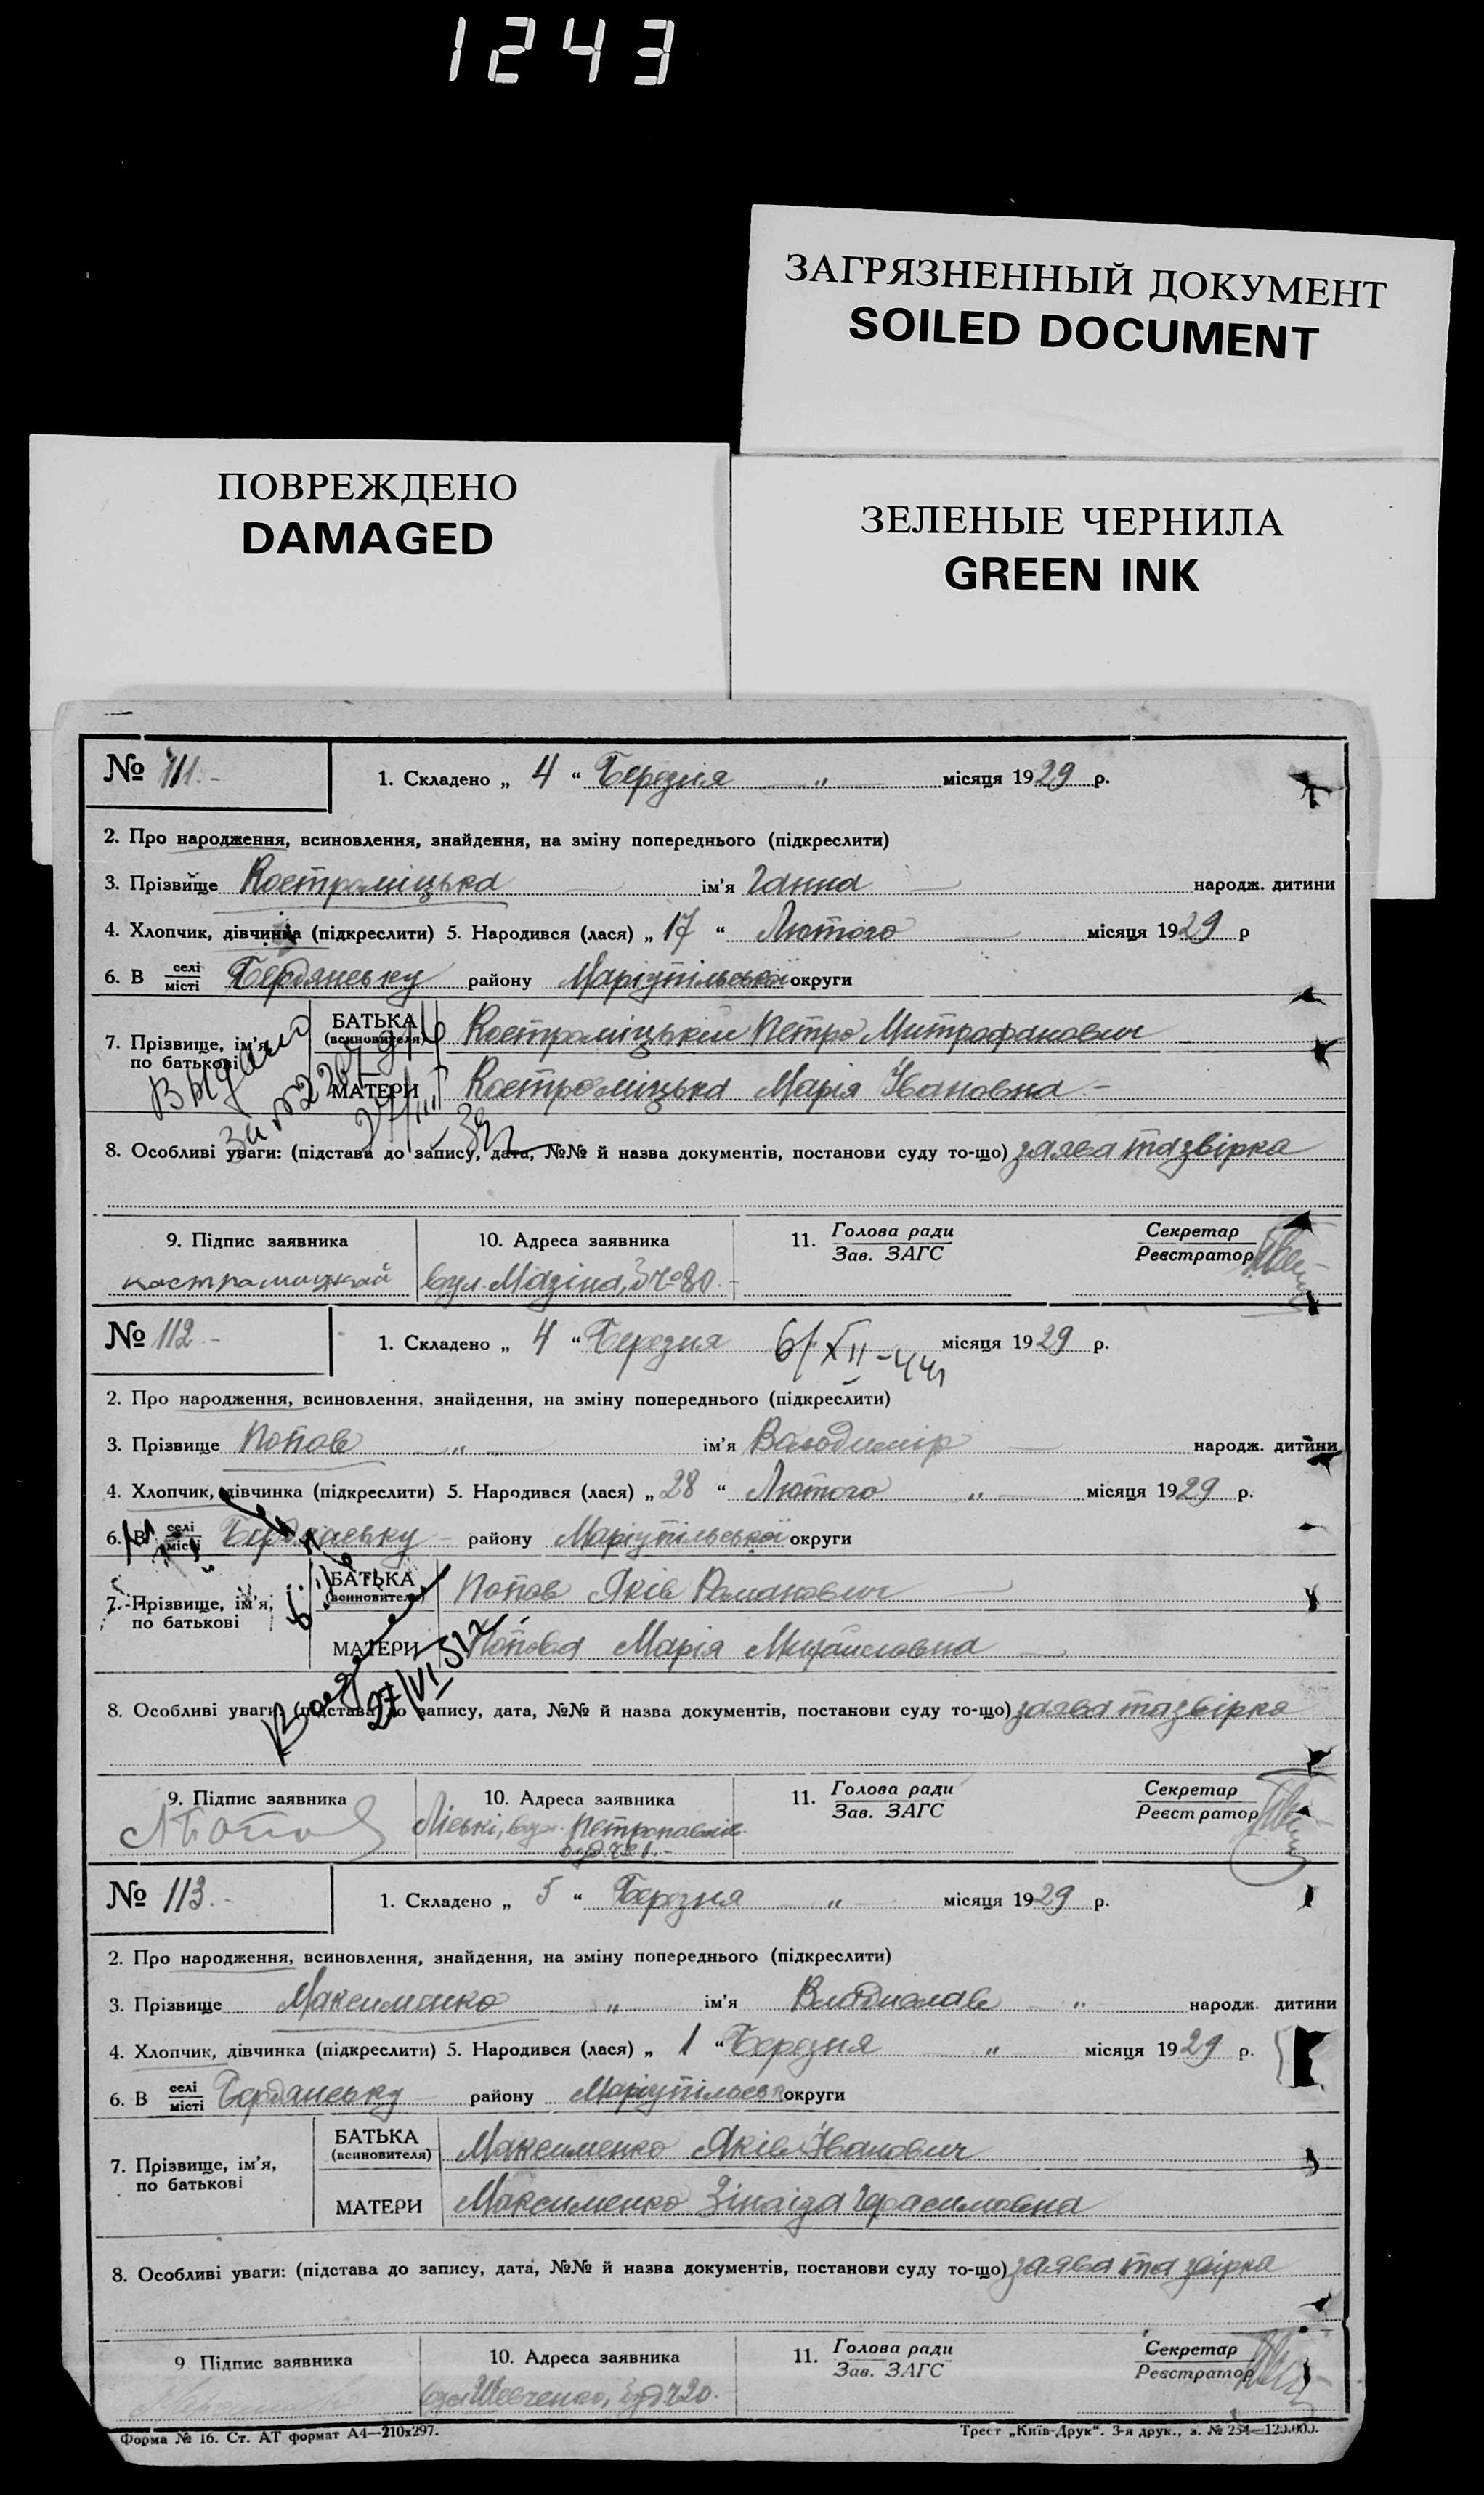 1243
ЗАГРЯЗНЕННЫЙ ДОКУМЕНТ
SOILED DOCUMENT
ПОВРЕЖДЕНО
DAMAGED
ЗЕЛЕНЫЕ ЧЕРНИЛА
GREEN INK
№ 111.-
1. Складено „ 4 “ Березня „ місяця 1929 р.
2. Про народження, всиновлення, знайдення, на зміну попереднього (підкреслити)
3. Прізвище Костроміцька ім'я Ганна народж. дитини
4. Хлопчик, дівчинка (підкреслити) 5. Народився (лася) „ 17 “ Лютого місяця 1929 р
6. В селі місті Бердянську району Маріупільської округи
7. Прізвище, ім'я, по батькові
БАТЬКА (всиновителя) Костроміцький Петро Митрофанович
МАТЕРИ Костроміцька Марія Івановна -
8. Особливі уваги: (підстава до запису, дата, №№ й назва документів, постанови суду то-що) заява та звірка
9. Підпис заявника
10. Адреса заявника
11. Голова ради Зав. ЗАГС
Секретар Реєстратор
костромицкий
вул. Мазіна, 80.-
№ 112.-
1. Складено „ 4 “ Березня 6/XII-44 місяця 1929 р.
2. Про народження, всиновлення, знайдення, на зміну попереднього (підкреслити)
3. Прізвище Попов „ ім'я Володимір народж. дитини
4. Хлопчик, дівчинка (підкреслити) 5. Народився (лася) „ 28 “ Лютого „ місяця 1929 р.
6. В селі місті Бердянську району Маріупільської округи
7. Прізвище, ім'я, по батькові
БАТЬКА (всиновителя) Попов Яків Романович
МАТЕРИ Попова Марія Михайловна
27/VI 51
8. Особливі уваги: (підстава до запису, дата, №№ й назва документів, постанови суду то-що) заява та звірка
9. Підпис заявника
10. Адреса заявника
11. Голова ради Зав. ЗАГС
Секретар Реєстратор
Попов
Ліскі, вул.
№ 113.-
1. Складено „ 5 “ Березня „ місяця 1929 р.
2. Про народження, всиновлення, знайдення, на зміну попереднього (підкреслити)
3. Прізвище Максименко „ ім'я Владислав „ народж. дитини
4. Хлопчик, дівчинка (підкреслити) 5. Народився (лася) „ 1 “ Березня „ місяця 1929 р.
6. В селі місті Бердянську району Маріупільськ округи
7. Прізвище, ім'я, по батькові
БАТЬКА (всиновителя) Максименко Яків Іванович
МАТЕРИ Максименко Зінаіда Герасимовна
8. Особливі уваги: (підстава до запису, дата, №№ й назва документів, постанови суду то-що) заява та звірка
9 Підпис заявника
10. Адреса заявника
11. Голова ради Зав. ЗАГС
Секретар Реєстратор
вул Шевченко, буд 20.
Форма № 16. Ст. АТ формат А4—210x297.
Трест „Київ-Друк“. 3-я друк., з. № 254—120.000.